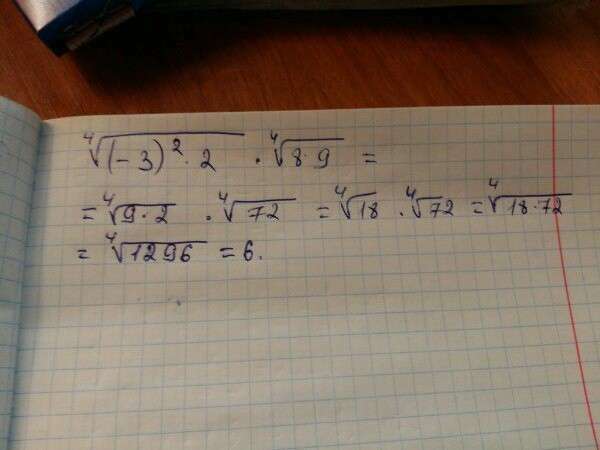 ⁴√((-3)² · 2) · ⁴√(8 · 9) =
= ⁴√(9 · 2) · ⁴√72 = ⁴√18 · ⁴√72 = ⁴√(18 · 72)
= ⁴√1296 = 6.